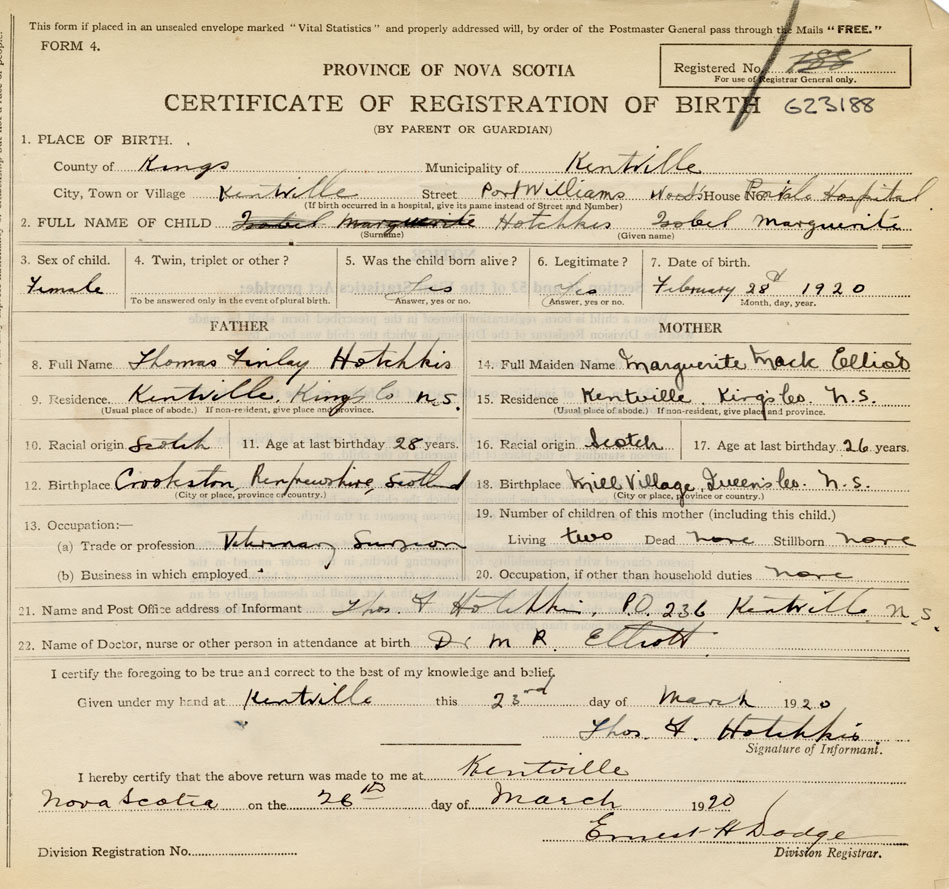 This form if placed in an unsealed envelope marked "Vital Statistics" and properly addressed will, by order of the Postmaster General pass through the Mails "FREE."
FORM 4.
Registered No. 188
For use of Registrar General only.
PROVINCE OF NOVA SCOTIA
CERTIFICATE OF REGISTRATION OF BIRTH 623188
(BY PARENT OR GUARDIAN)
1. PLACE OF BIRTH.
County of Kings Municipality of Kentville
City, Town or Village Kentville Street Port Williams House No. Hospital
(If birth occurred in a hospital, give its name instead of Street and Number)
2. FULL NAME OF CHILD Isobel Marguerite Hotchkis Isobel Marguerite
(Surname) (Given name)
3. Sex of child. 4. Twin, triplet or other? 5. Was the child born alive? 6. Legitimate? 7. Date of birth.
Female Yes Yes February 28th 1920
To be answered only in the event of plural birth. Answer, yes or no. Answer, yes or no. Month, day, year.
FATHER MOTHER
8. Full Name Thomas Finlay Hotchkis 14. Full Maiden Name Marguerite Mack Elliot
9. Residence. Kentville, Kings Co N.S. 15. Residence Kentville Kings Co. N.S.
(Usual place of abode.) If non-resident, give place and province. (Usual place of abode.) If non-resident, give place and province.
10. Racial origin Scotch 11. Age at last birthday 28 years. 16. Racial origin Scotch 17. Age at last birthday 26 years.
12. Birthplace Crookston, Renfrewshire, Scotland 18. Birthplace Mill Village, Queens Co. N.S.
(City or place, province or country.) (City or place, province or country.)
13. Occupation:— 19. Number of children of this mother (including this child.)
(a) Trade or profession Veterinary Surgeon Living two Dead none Stillborn none
(b) Business in which employed 20. Occupation, if other than household duties none
21. Name and Post Office address of Informant Thos. F Hotchkis. P.O. 236 Kentville N.S.
22. Name of Doctor, nurse or other person in attendance at birth Dr M R. Elliott
I certify the foregoing to be true and correct to the best of my knowledge and belief.
Given under my hand at Kentville this 23rd day of March 1920
Thos. F. Hotchkis.
Signature of Informant.
I hereby certify that the above return was made to me at Kentville
Nova Scotia on the 26th day of March 1920
Ernest H Dodge
Division Registrar.
Division Registration No.